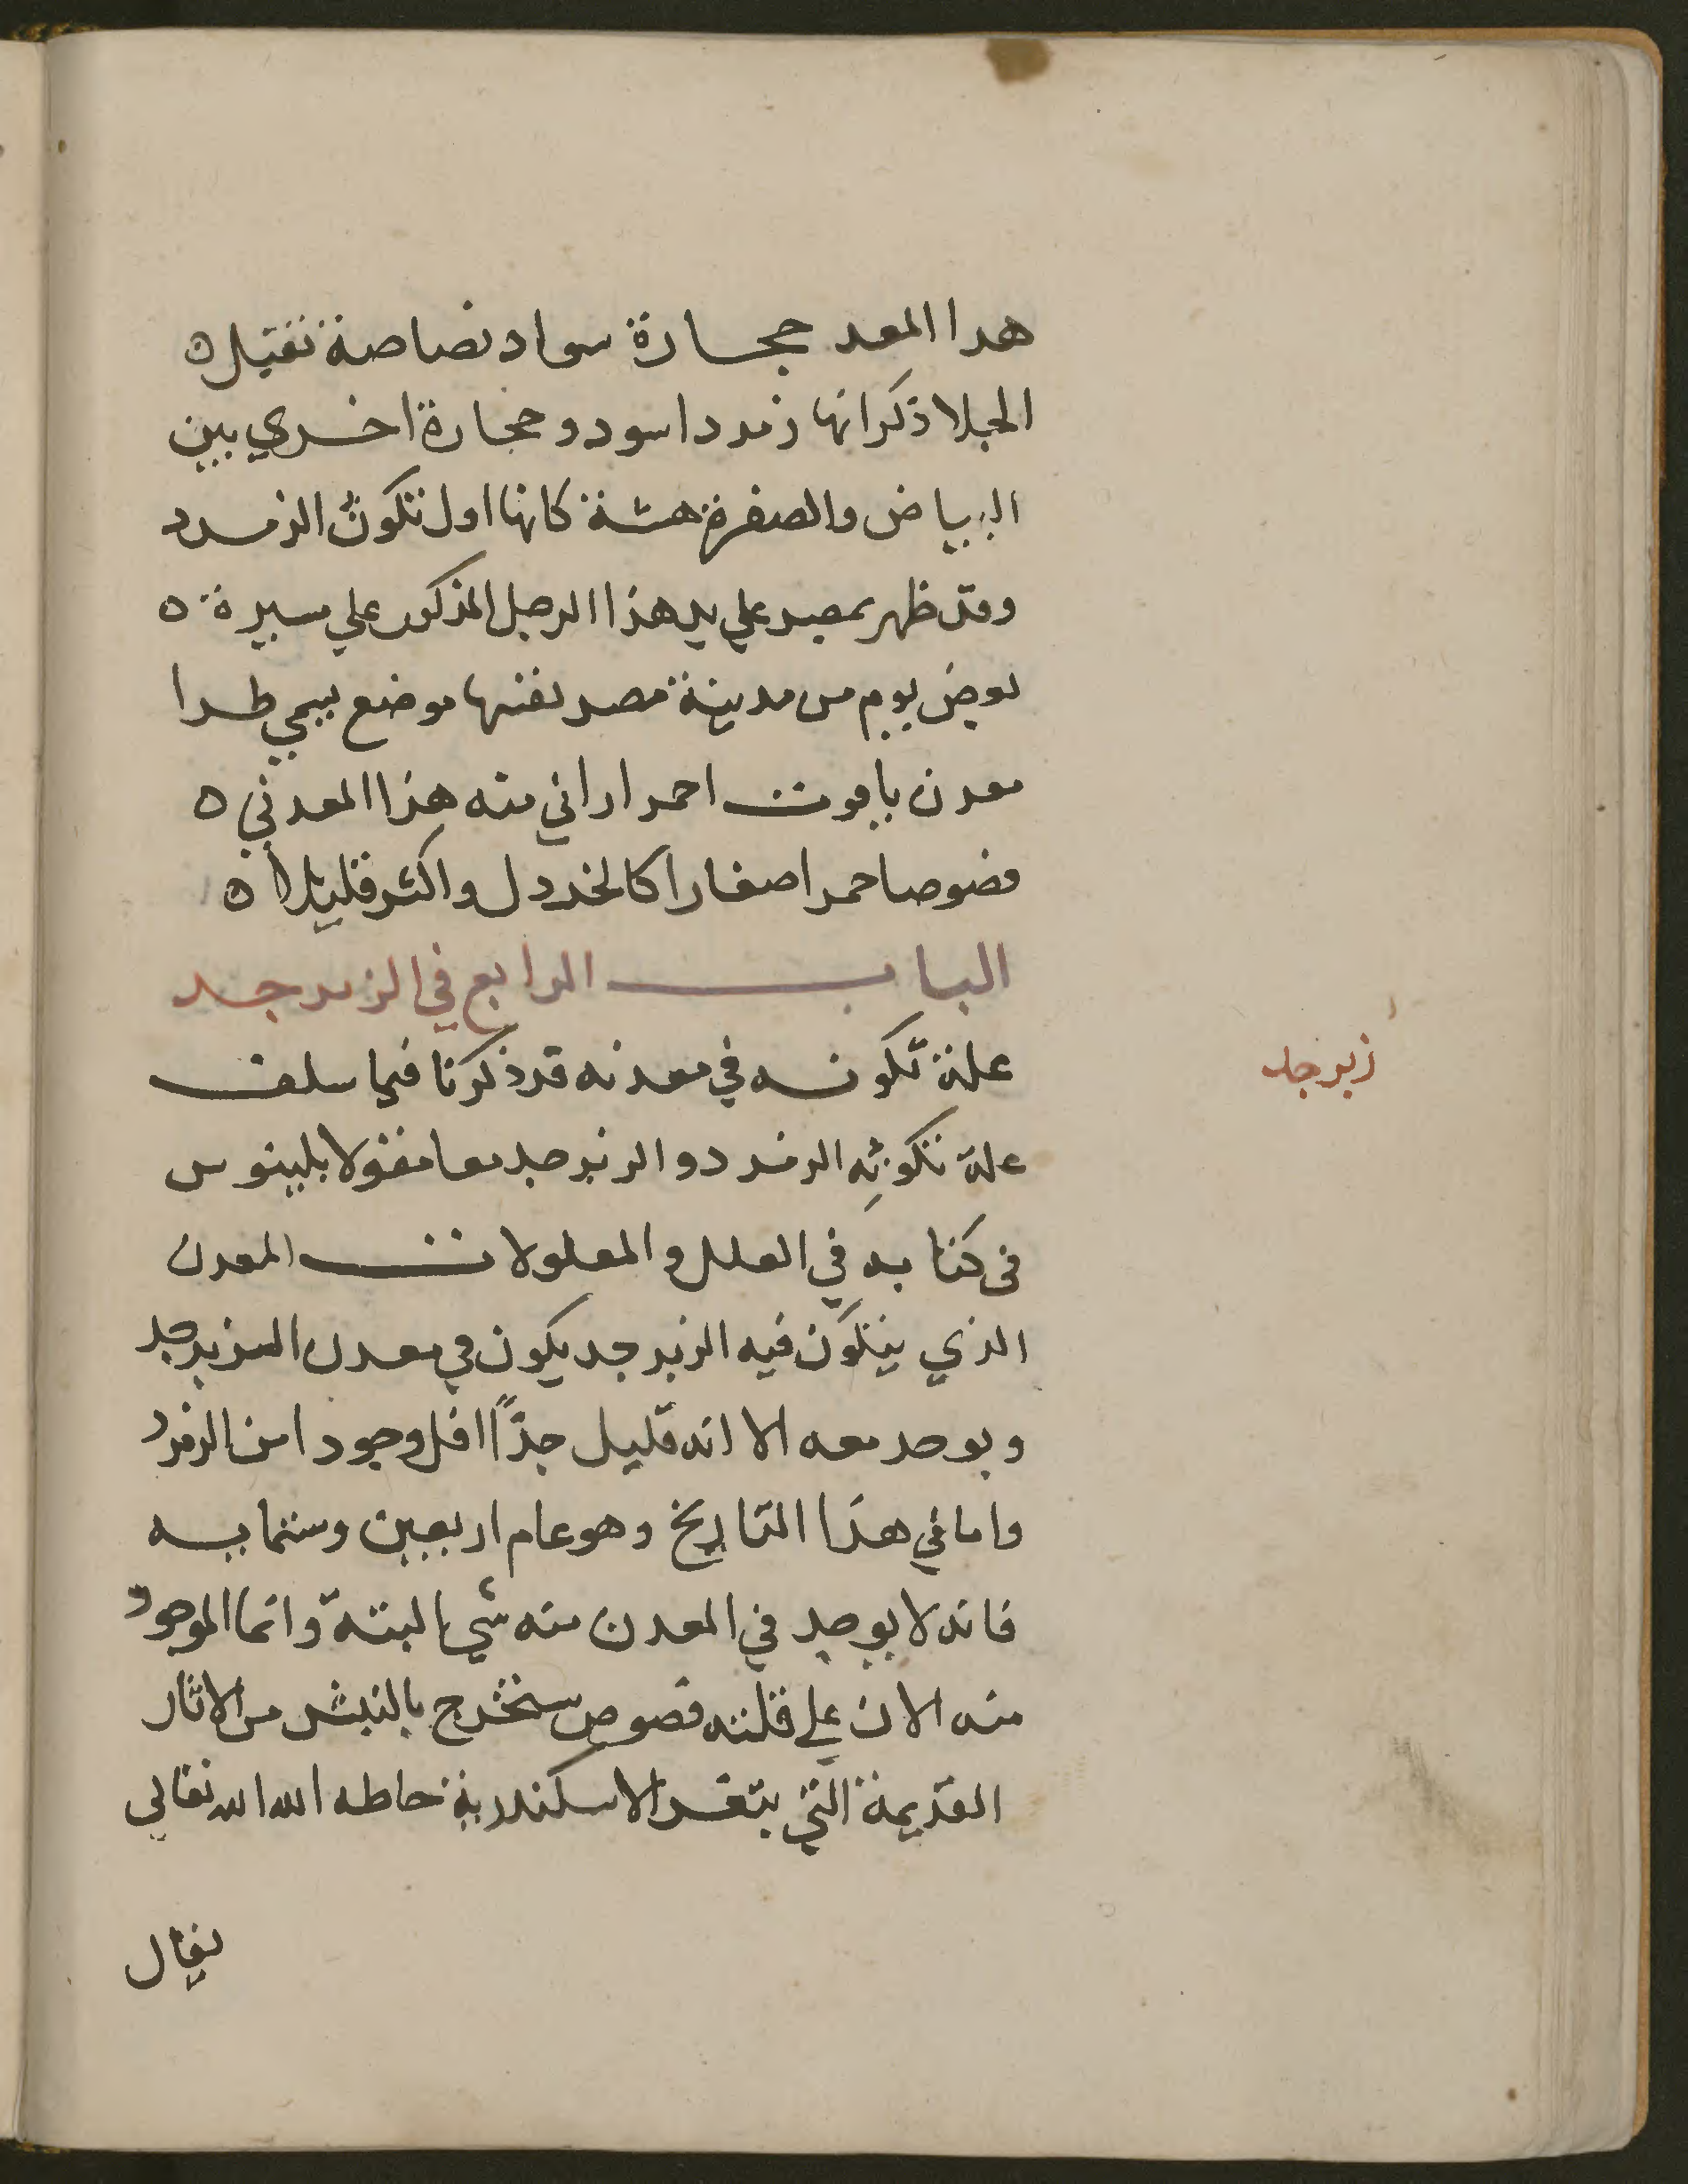 هدا المعد حجارة سواد نصاصة تقيل ه
الجلا ذكر انها زمرد اسود و حجارة اخري بين
البياض والصفرة هشة كانها اول تكون الزمرد
وقد ظهر بمصر علي يد هذا الرجل المذكور علي مسيرة ه
بعض يوم من مدينة مصر نفسها موضع يسمي طرا
معدن ياقوت احمر اراني منه هذا المعدني ه
فصوصا حمرا صغارا كالخردل واكثر قليلا ه
الباب الرابع في الزبرجد
زبرجد
علة تكونه في معدنه قد ذكرنا فيما سلف
علة تكونه الزمرد والزبرجد معا من قول بلينوس
في كتابه في العلل والمعلولات المعدن
الذي يتكون فيه الزبرجد يكون في معدن الزبرجد
ويوجد معه الا انه قليل جدًا اقل وجودا من الزمرد
واما في هذا التاريخ وهو عام اربعين وستمايه
فانه لا يوجد في المعدن منه شيء البتة وانما الموجود
منه الان علي قلته فصوص ستخرج بالنبش من الاثار
القديمة التي بثغر الاسكندرية حاطه الله الله تعالي
يقال